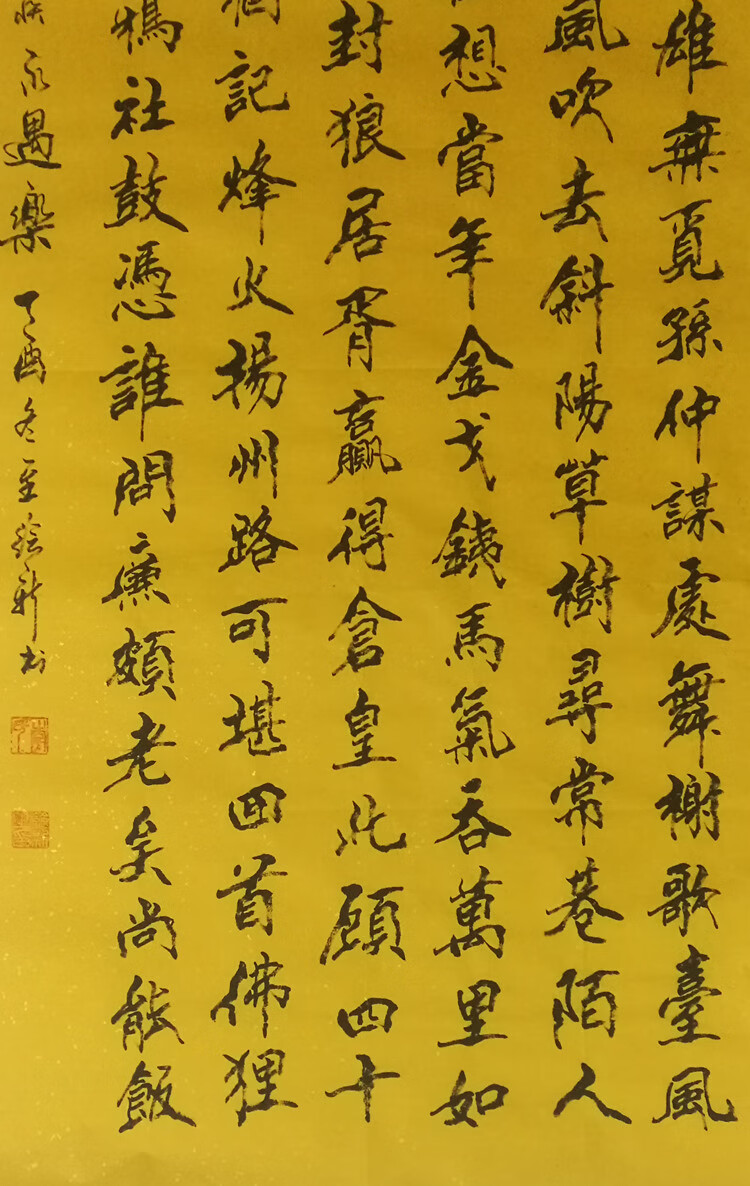 雄無覓孫仲謀處舞榭歌臺風
風吹去斜陽草樹尋常巷陌人
想當年金戈鐵馬氣吞萬里如
封狼居胥贏得倉皇北顧四十
記烽火揚州路可堪回首佛狸
鴉社鼓憑誰問廉頗老矣尚能飯
疾永遇樂 丁酉冬至新書